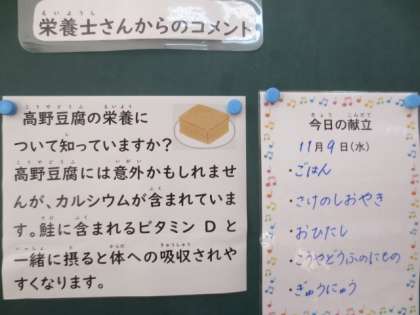 栄養士さんからのコメント
高野豆腐の栄養に
ついて知っていますか？
高野豆腐には意外かもしれませ
んが、カルシウムが含まれていま
す。鮭に含まれるビタミン D と
一緒に摂ると体への吸収されや
すくなります。
今日の献立
11月9日(水)
・ごはん
・さけのしおやき
・おひたし
・こうやどうふのにもの
・ぎゅうにゅう